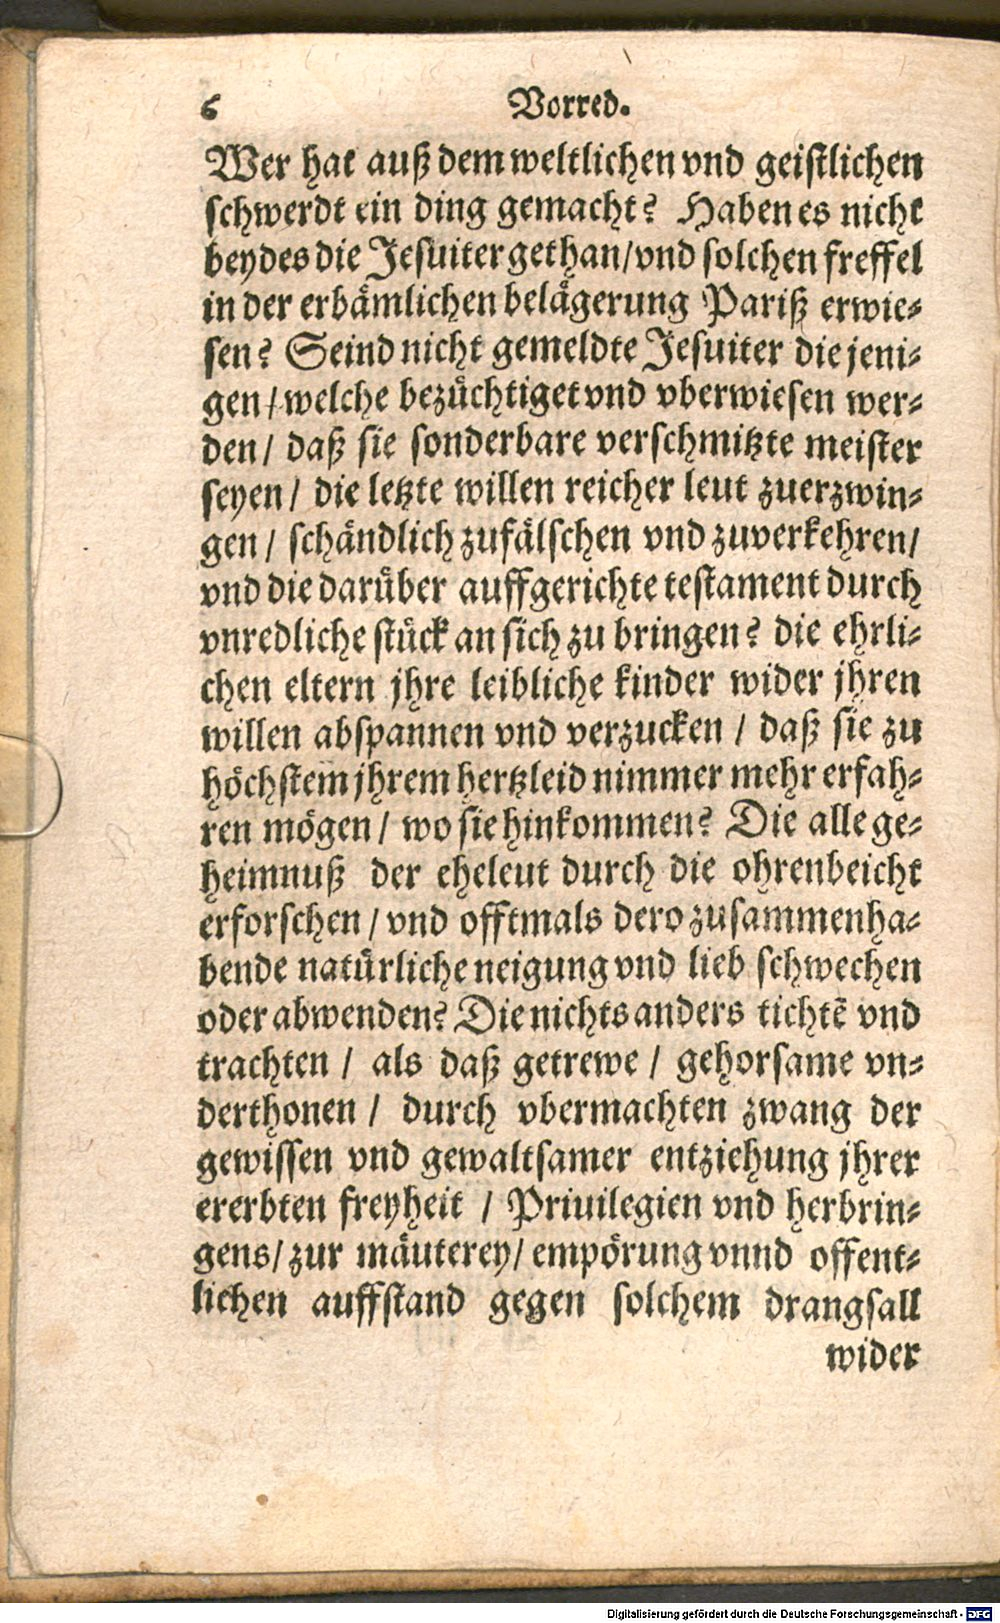 6 Vorred.
Wer hat auß dem weltlichen vnd geistlichen
schwerdt ein ding gemacht? Haben es nicht
beydes die Jesuiter gethan/vnd solchen freffel
in der erbämlichen belägerung Pariß erwie-
sen? Seind nicht gemeldte Jesuiter die jeni-
gen/welche bezüchtiget vnd vberwiesen wer-
den/ daß sie sonderbare verschmitzte meister
seyen/ die letzte willen reicher leut zuerzwin-
gen/ schändlich zufälschen vnd zuverkehren/
vnd die darüber auffgerichte testament durch
vnredliche stück an sich zu bringen? die ehrli-
chen eltern jhre leibliche kinder wider jhren
willen abspannen vnd verzucken / daß sie zu
höchstem jhrem hertzleid nimmer mehr erfah-
ren mögen/ wo sie hinkommen? Die alle ge-
heimnuß der eheleut durch die ohrenbeicht
erforschen/vnd offtmals dero zusammenha-
bende natürliche neigung vnd lieb schwechen
oder abwenden? Die nichts anders tichtẽ vnd
trachten / als daß getrewe / gehorsame vn-
derthonen / durch vbermachten zwang der
gewissen vnd gewaltsamer entziehung jhrer
ererbten freyheit / Priuilegien vnd herbrin-
gens/ zur mäuterey/ empörung vnnd offent-
lichen auffstand gegen solchem drangsall
wider
Digitalisierung gefördert durch die Deutsche Forschungsgemeinschaft - DFG